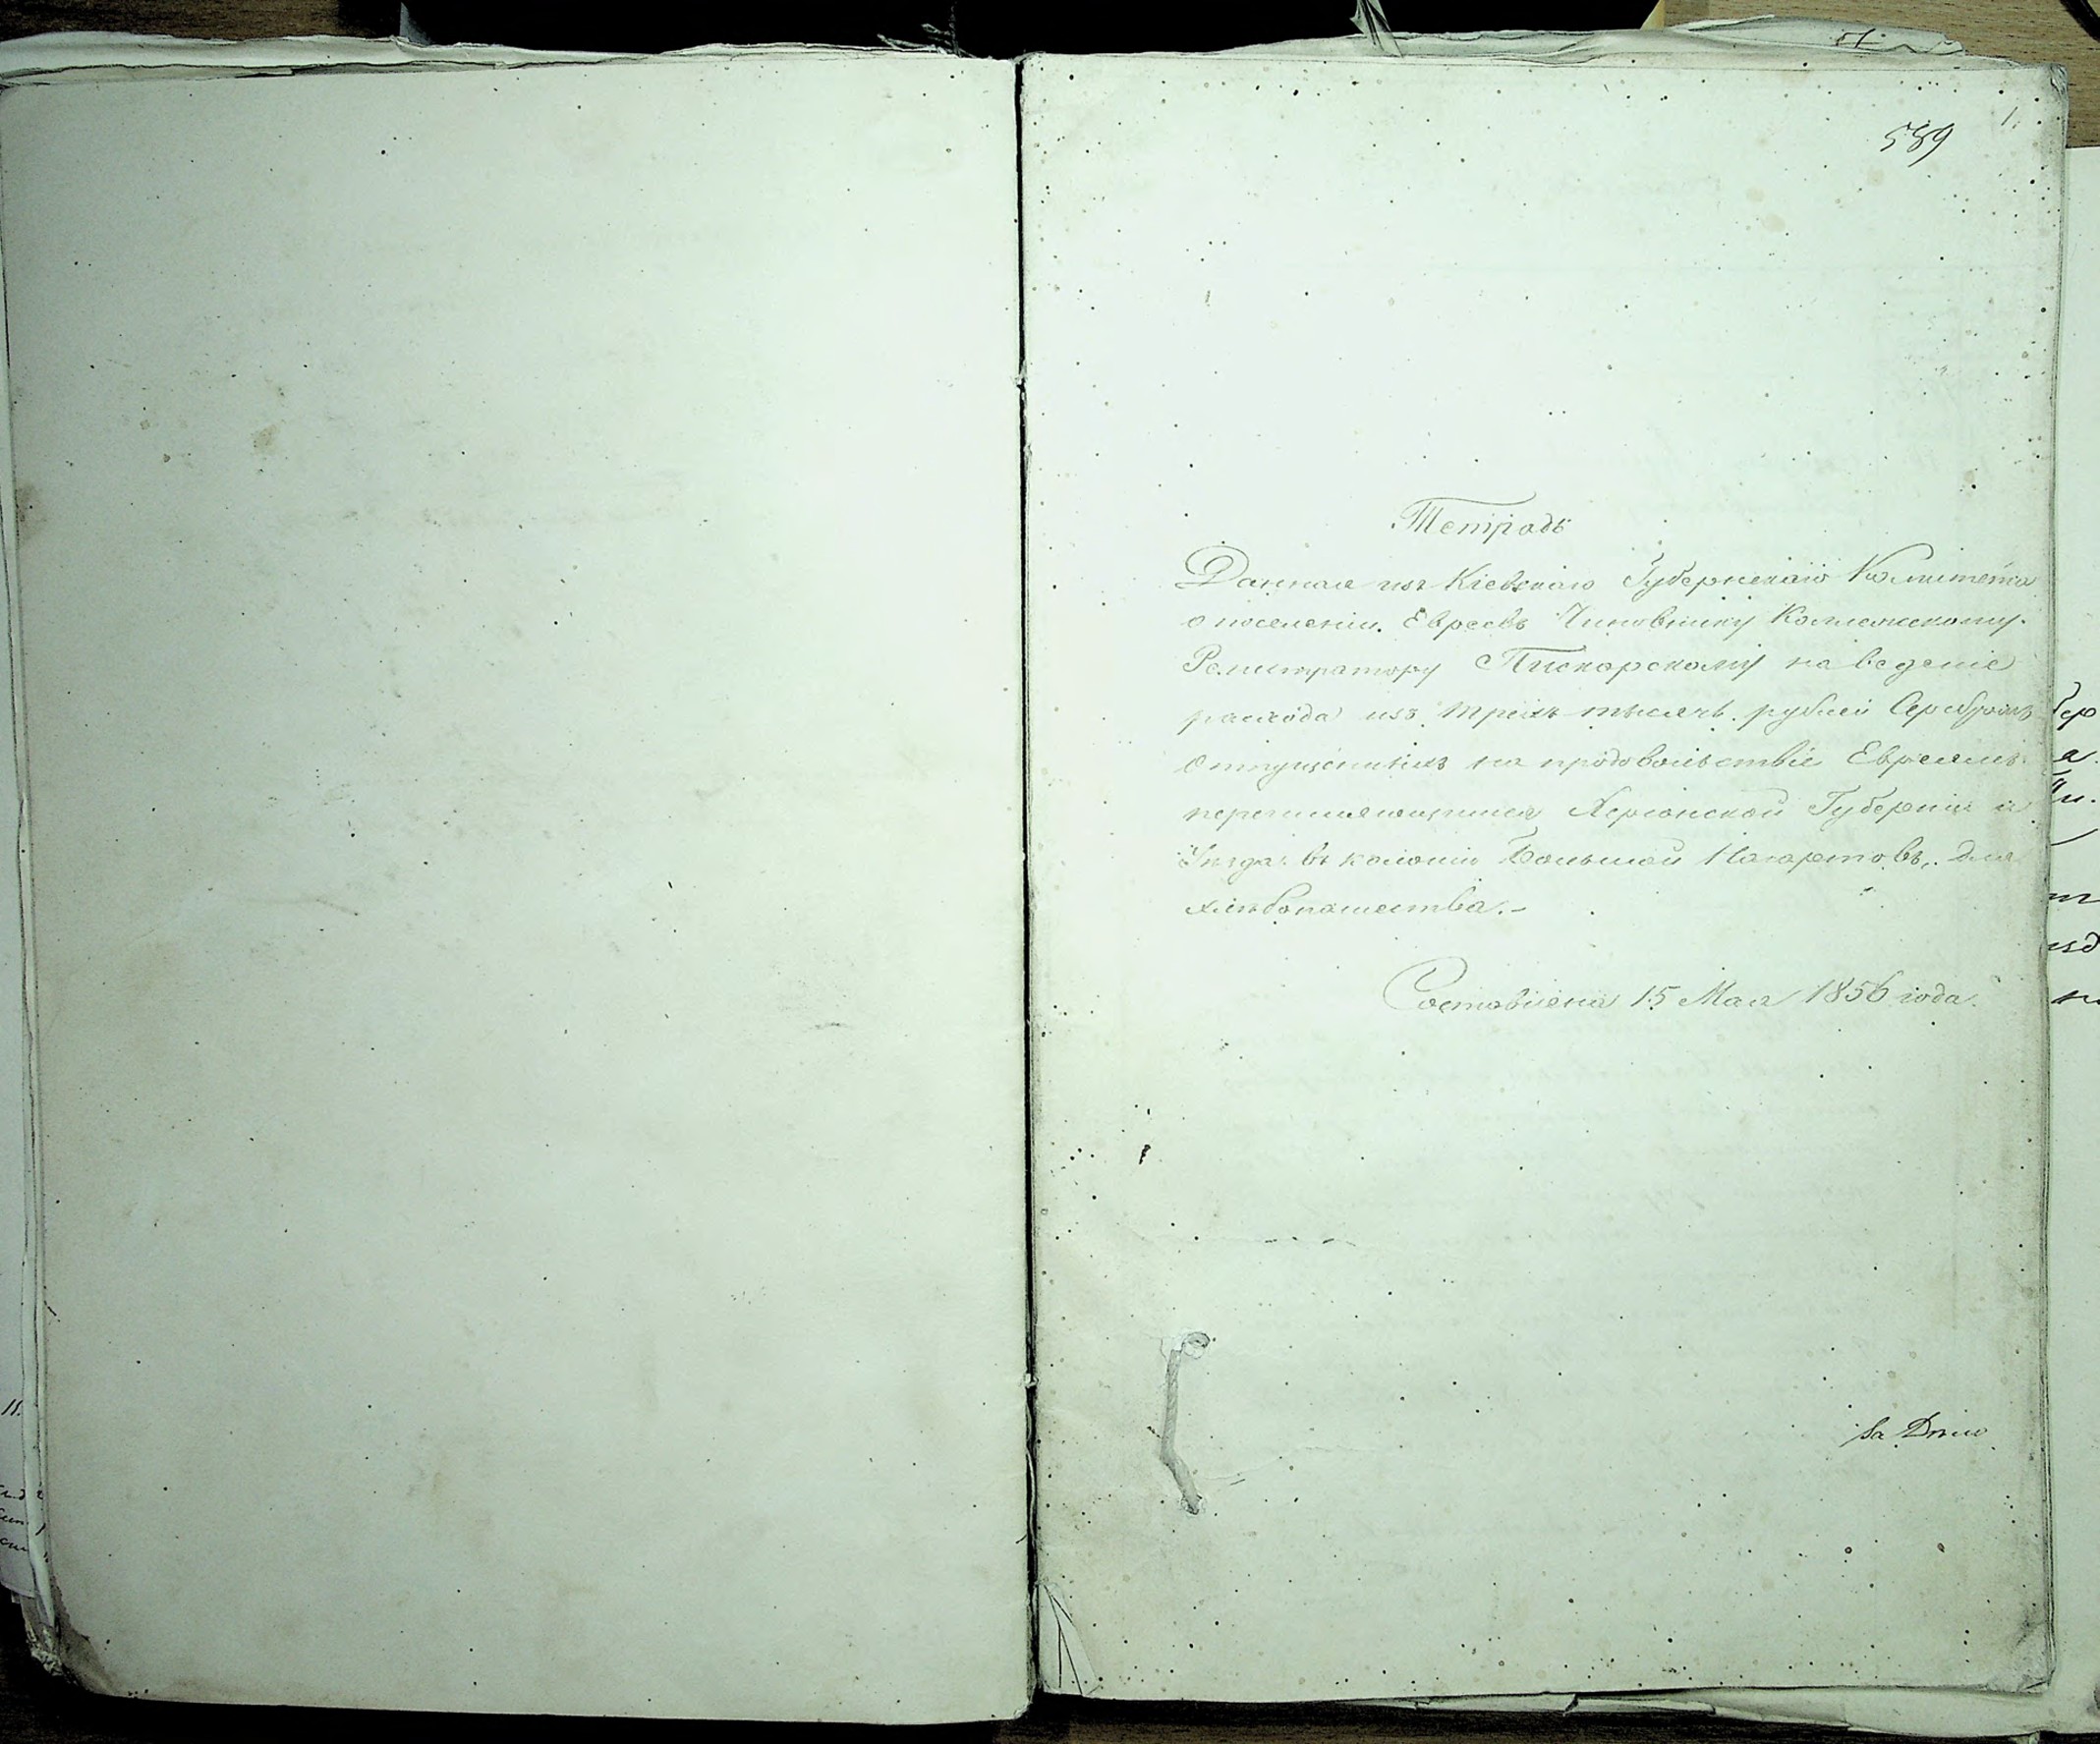 1.
589
Тетрадь
Данная изъ Кіевскаго Губернскаго Комитета
о поселеніи Евреевъ Чиновнику Коллежскому
Регистратору Пискорскому на веденіе
расхода изъ трехъ тысячъ рублей Серебромъ
отпущенныхъ на продовольствіе Евреямъ
переселяющимся Херсонской Губерніи и
Уезда въ колонію Большой Нагартовъ, для
хлебопашества.-
Составлена 15 Мая 1856 года.